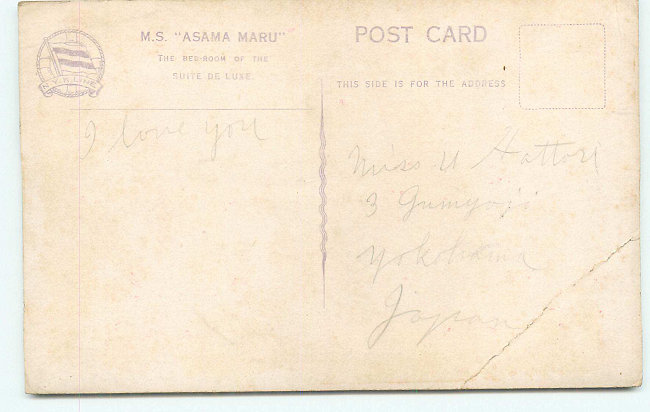 M.S. "ASAMA MARU"
THE BED-ROOM OF THE
SUITE DE LUXE.
N.Y.K. LINE
I love you
POST CARD
THIS SIDE IS FOR THE ADDRESS
Miss U Hattori
3 Gumyoji
Yokohama
Japan